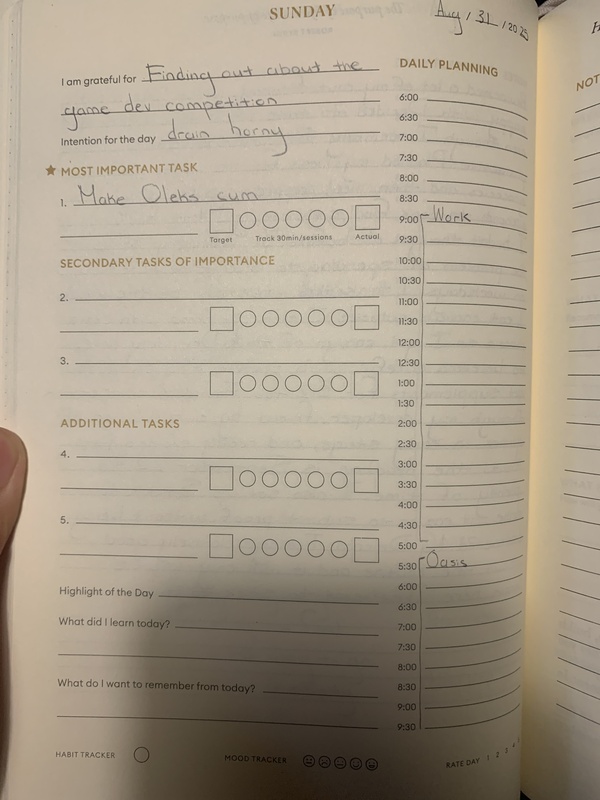 SUNDAY
Aug / 31 / 2025
I am grateful for Finding out about the
game dev competition
Intention for the day drain horny
★ MOST IMPORTANT TASK
1. Make Oleks cum
Target Track 30min/sessions Actual
SECONDARY TASKS OF IMPORTANCE
2.
3.
ADDITIONAL TASKS
4.
5.
Highlight of the Day
What did I learn today?
What do I want to remember from today?
HABIT TRACKER
MOOD TRACKER
DAILY PLANNING
6:00
6:30
7:00
7:30
8:00
8:30
9:00 Work
9:30
10:00
10:30
11:00
11:30
12:00
12:30
1:00
1:30
2:00
2:30
3:00
3:30
4:00
4:30
5:00
5:30 Oasis
6:00
6:30
7:00
7:30
8:00
8:30
9:00
9:30
RATE DAY 1 2 3 4
NOT